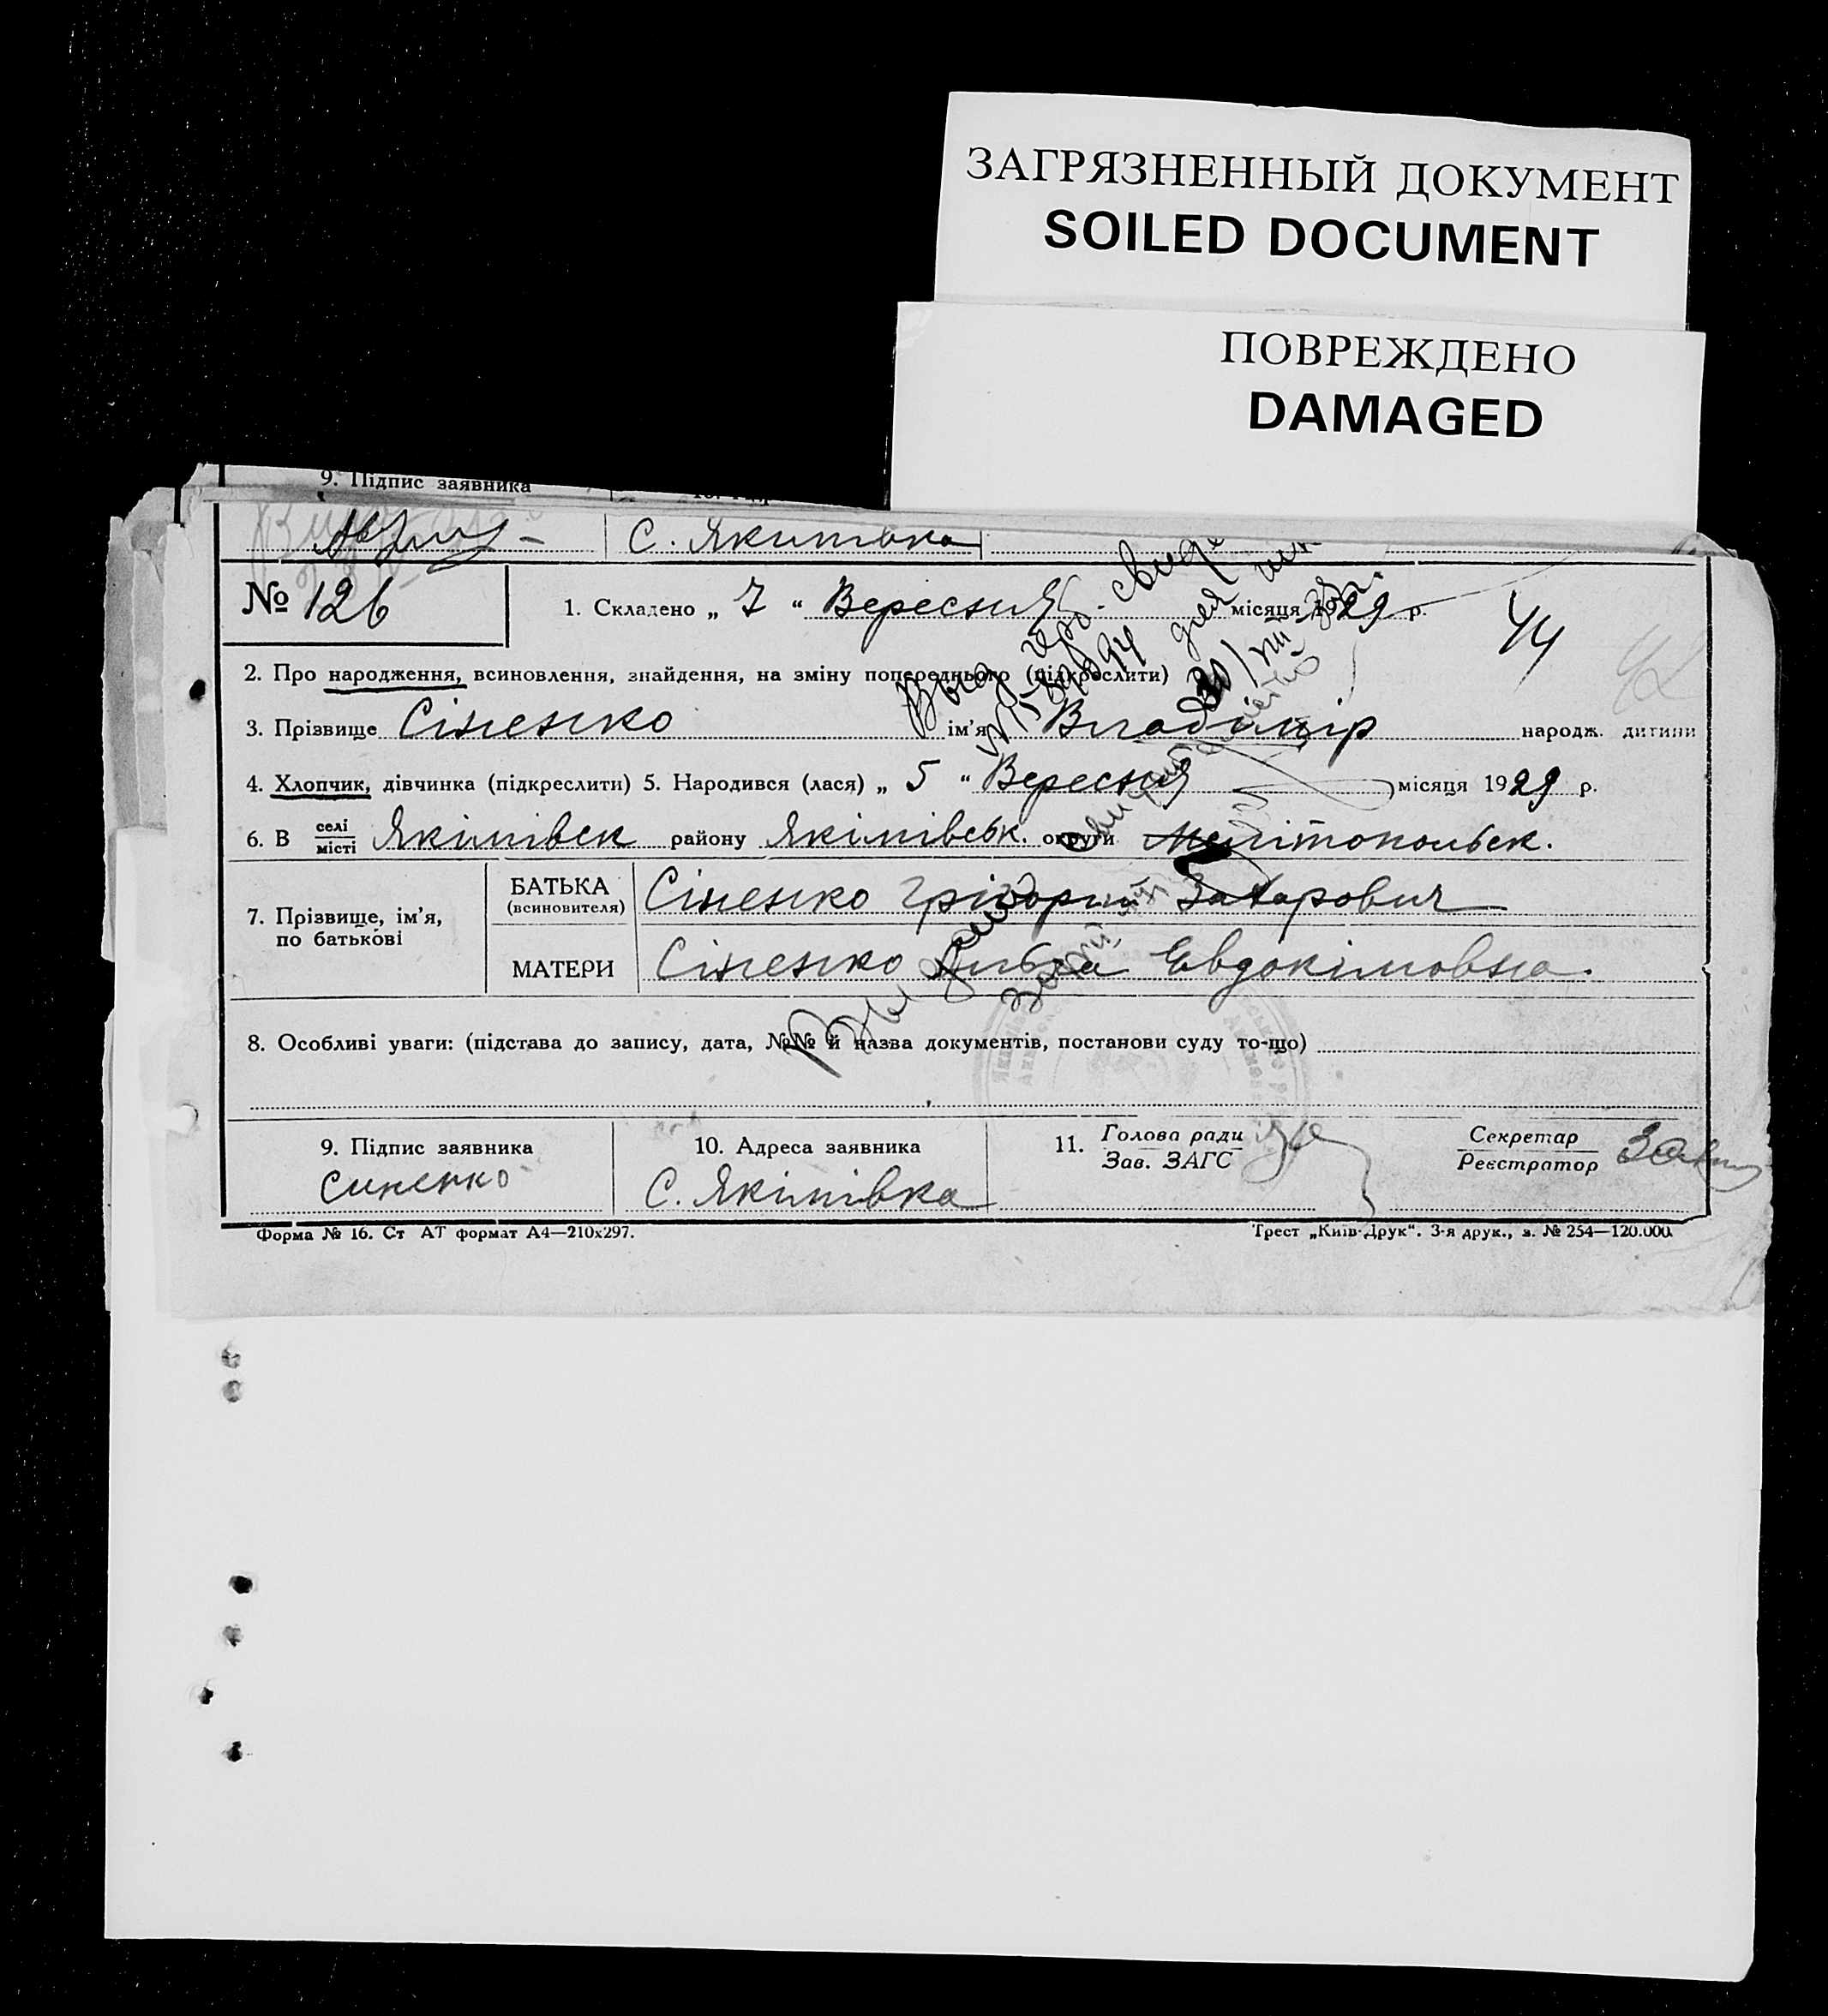 ЗАГРЯЗНЕННЫЙ ДОКУМЕНТ
SOILED DOCUMENT
ПОВРЕЖДЕНО
DAMAGED
9. Підпис заявника
С. Якимовка
№ 126
1. Складено „ 7 “ Вересня місяця 1929 р.
44
2. Про народження, всиновлення, знайдення, на зміну попереднього (підкреслити)
3. Прізвище Сіненко ім’я Владімір народж. дитини
4. Хлопчик, дівчинка (підкреслити) 5. Народився (лася) „ 5 “ Вересня місяця 1929 р.
6. В селі місті Якімівск району Якімівськ. округи Мелітопольск.
7. Прізвище, ім’я, по батькові
БАТЬКА (всиновителя) Сіненко Грігорий Захарович
МАТЕРИ Сіненко Евдокімовна.
8. Особливі уваги: (підстава до запису, дата, №№ й назва документів, постанови суду то-що)
9. Підпис заявника
Синенко
10. Адреса заявника
С. Якімівка
11. Голова ради
Зав. ЗАГС
Секретар
Реєстратор
Форма № 16. Ст АТ формат А4—210х297.
Трест „Київ-Друк“. 3-я друк., з. № 254—120.000.